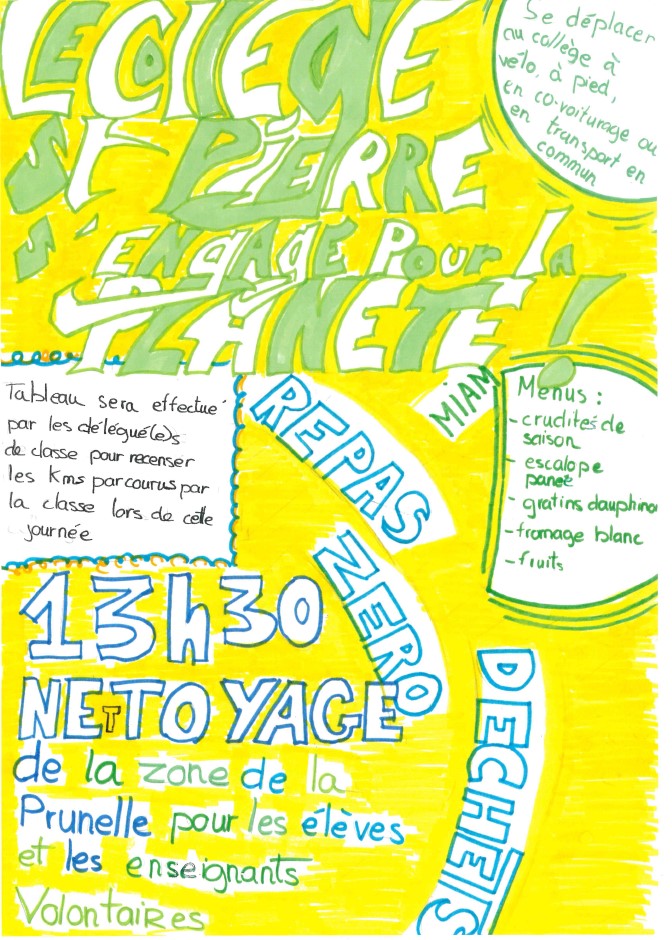 LE COLLEGE
ST PIERRE
S'ENgAgE POUR LA
PLANETE !
Se déplacer
au collège à
vélo, à pied,
en co-voiturage ou
en transport en
commun
Tableau sera effectué
par les délégué(e)s
de classe pour recenser
les Kms parcourus par
la classe lors de cette
journée
REPAS
ZERO
DECHETS
MIAM
Menus :
- crudités de
saison
- escalope
panée
- gratins dauphino
- fromage blanc
- fruits
13h30
NETTOYAGE
de la zone de la
Prunelle pour les élèves
et les enseignants
Volontaires